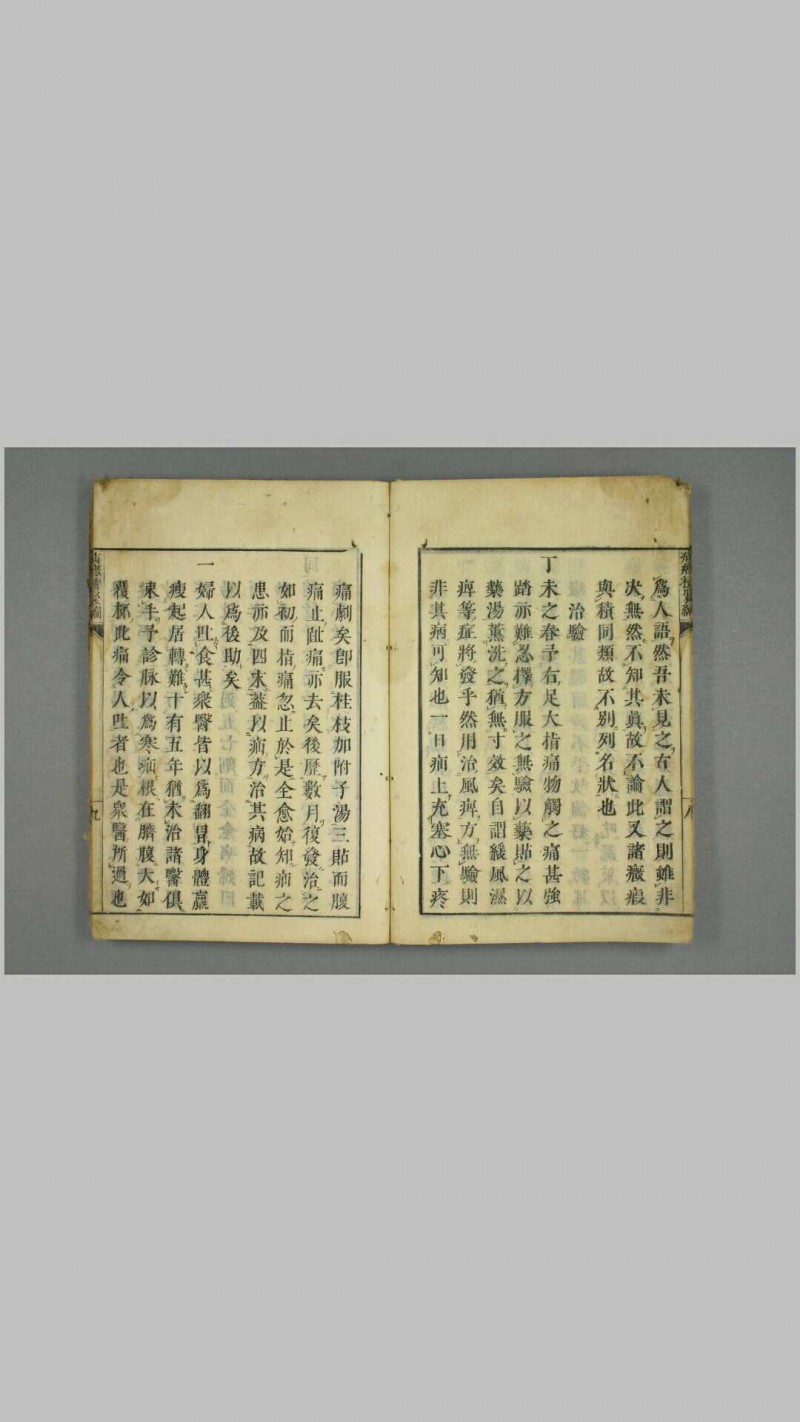 爲人語然吾未見之古人謂之則雖非
決無然不知其眞故不論此又諸癥瘕
與積同類故不別列名狀也
治驗
丁未之春予右足大指痛物觸之痛甚強
踏亦難忍擇方服之無驗以藥貼之以
藥湯薰洗之猶無寸效矣自謂緩風濕
痺等症將發乎然用治風痺方無驗則
非其病可知也一日疝上充塞心下疼
痛劇矣卽服桂枝加附子湯三貼而腹
痛止趾痛亦去矣後歷數月復發治之
如初而指痛忽止於是全愈始知疝之
患亦及四末蓋以疝方治其病故記載
以爲後助矣
一婦人吐食甚衆醫皆以爲翻胃身體羸
瘦起居轉難十有五年猶未治諸醫俱
束手予診脉以爲寒疝根在臍腹大如
覆杯此痛令人吐者也是衆醫所過也
八
九